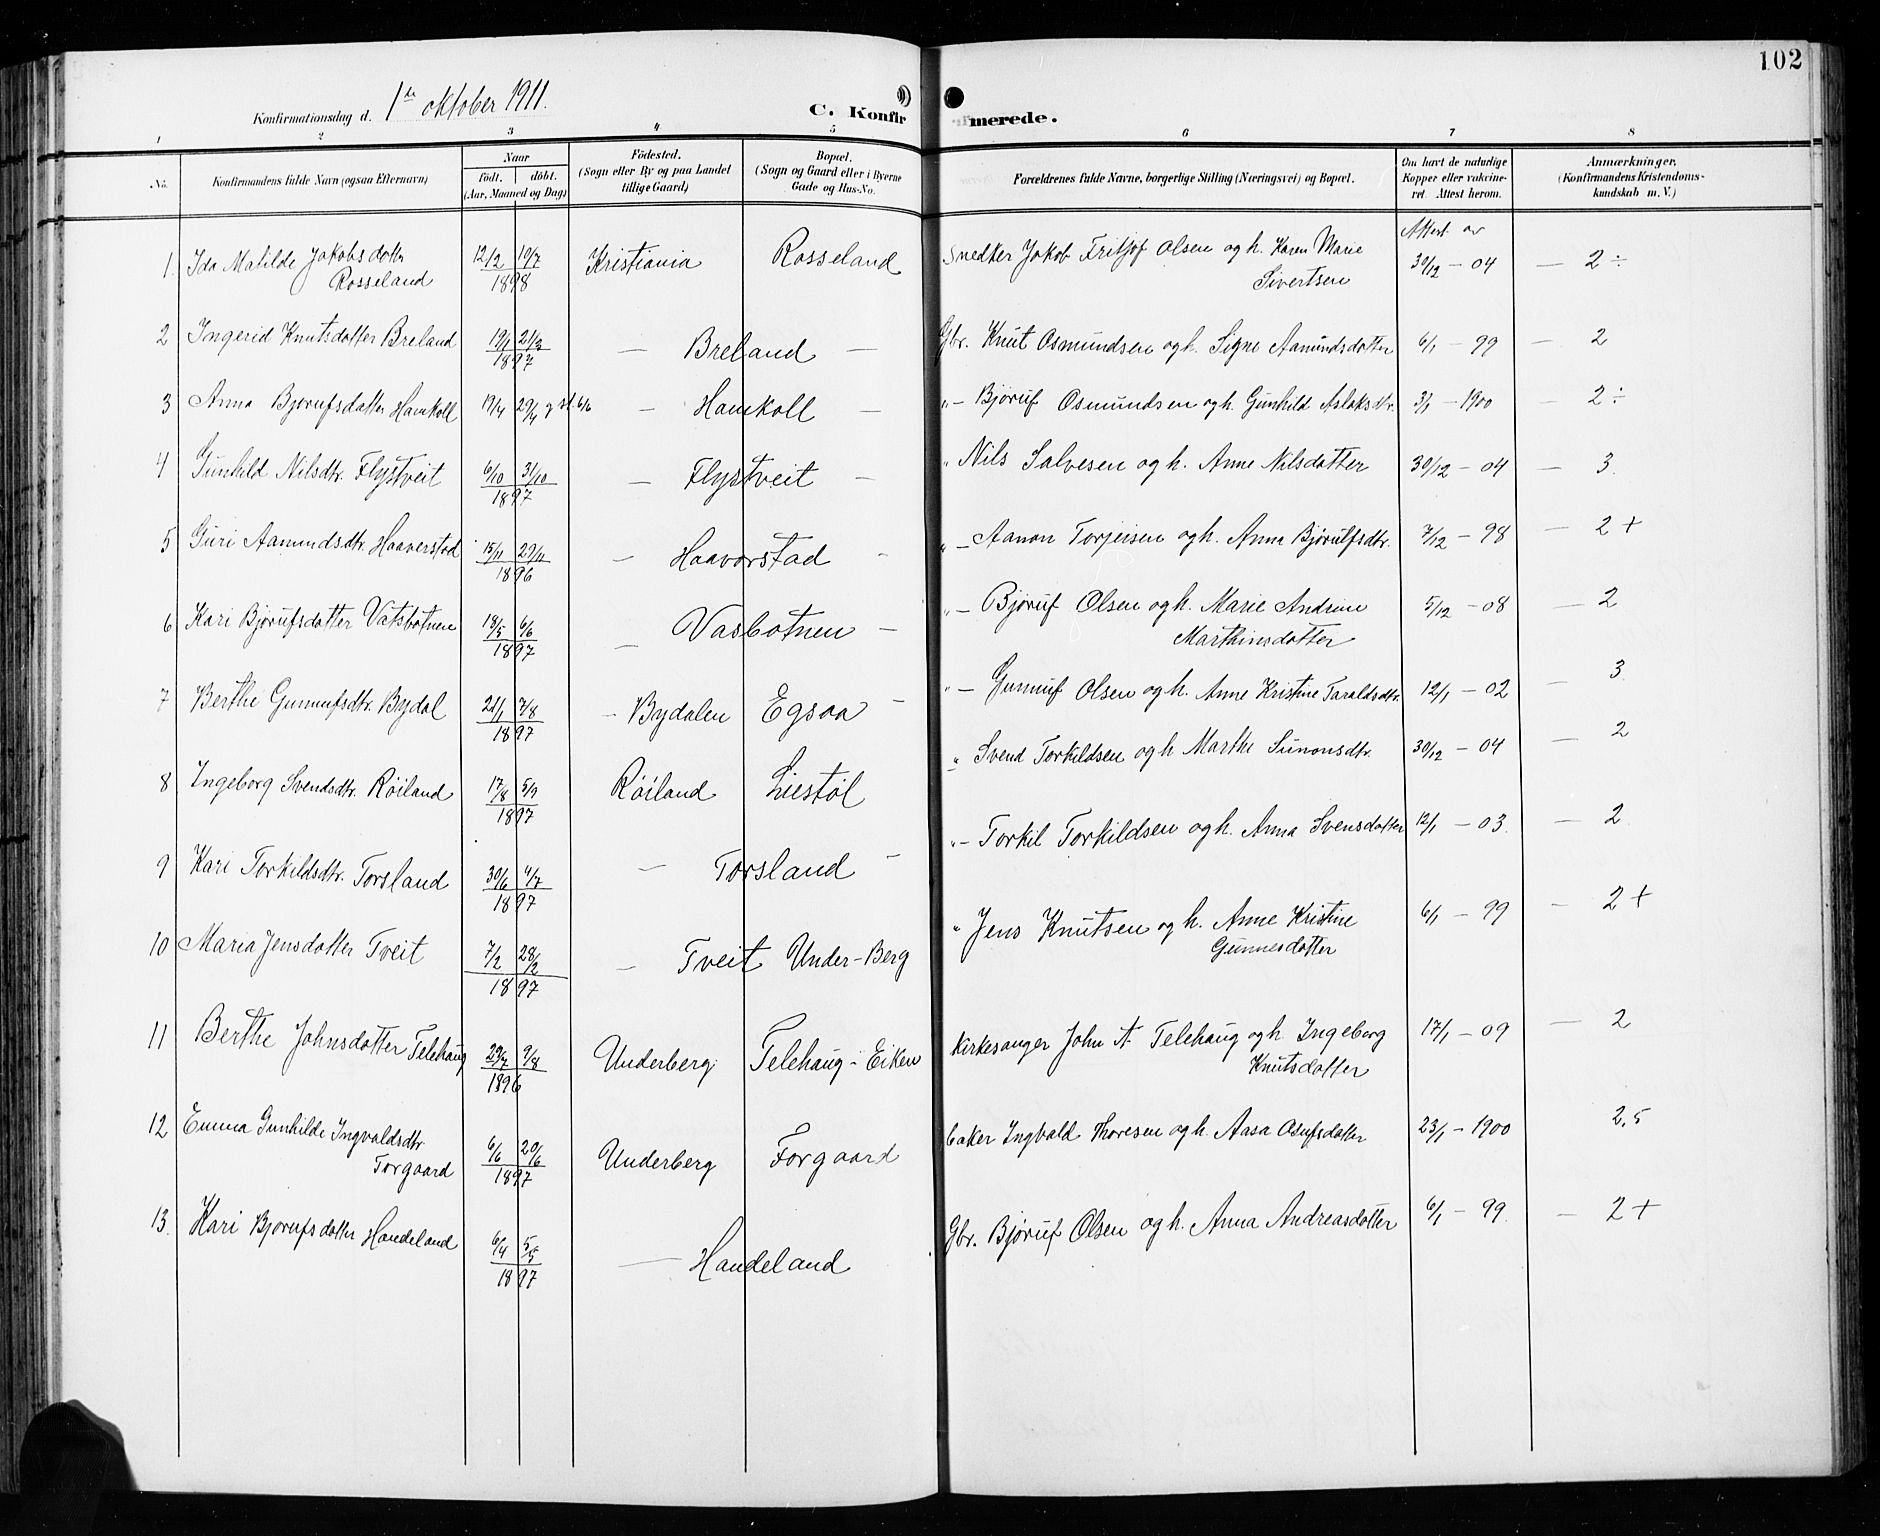 102
Konfirmationsdag d. 1ste oktober 1911.
C. Konfirmerede.
1 2 3 4 5 6 7 8
No. Konfirmandens fulde Navn (ogsaa Efternavn) Naar født. døbt. (Aar, Maaned og Dag) Fødested. (Sogn eller By og paa Landet tillige Gaard) Bopæl. (Sogn og Gaard eller i Byerne Gade og Hus-No.) Forældrenes fulde Navne, borgerlige Stilling (Næringsvei) og Bopæl. Om havt de naturlige Kopper eller vakcineret. Attest herom. Anmærkninger. (Konfirmandens Kristendomskundskab m. V.)
Attest av
1. Ida Matilde Jakobsdotter Rosseland 12/2 10/7 1898 Kristiania Rosseland Snedker Jakob Fritjof Olsen og h. Karen Marie Sivertsen 30/12 – 04 — 2 ÷
2 Ingerid Knutsdotter Breland 19/1 21/3 1897 — Breland — Gbr. Knut Osmundsen og h. Signe Aamundsdotter 6/1 – 99 — 2
3 Anna Bjorufsdatter Hamkoll 17/4 29/4 — Hamkoll — " – Bjøruf Osmundsen og h. Gunhild Aslaksdtr. 3/1 – 1900 — 2 ÷
4 Gunhild Nilsdtr. Flystveit 6/10 31/10 1897 — Flystveit — " Nils Salvesen og h. Anne Nilsdotter 30/12 – 04 — 3.
5 Guri Aamundsdtr. Haaverstad 15/11 29/11 1896 — Haavorstad — " – Aanon Torjeisen og h. Anna Bjørulfsdtr. 7/12 – 98 — 2 +
6 Kari Bjørufsdotter Vatsbotnen 18/5 6/6 1897 — Vasbotnen — " – Bjøruf Olsen og h. Marie Andrine Marthinsdotter 5/12 – 08 — 2
7 Berthe Gunnufsdtr. Bydal 21/1 7/8 1897 — Bydalen Egsaa — " – Gunnuf Olsen og h. Anne Kristine Taraldsdtr. 12/1 – 02 — 3
8 Ingeborg Svendsdtr. Røiland 17/8 5/9 1897 Røiland Liestøl " Svend Torkildsen og h Marthe Simonsdtr. 30/12 – 04 — 2
9 Kari Torkildsdtr. Torsland 30/6 4/7 1897 — Torsland — " – Torkil Torkildsen og h. Anna Svensdotter 12/1 – 03. — 2.
10 Maria Jensdotter Tveit 7/2 28/2 1897 — Tveit Under-Berg " Jens Knutsen og h. Anne Kristine Gunnesdotter 6/1 – 99 — 2 +
11 Berthe Johnsdotter Telehaug 29/7 9/8 1896 Underberg Telehaug – Eiken Kirkesanger John A. Telehaug og h Ingeborg Knutsdotter 17/1 – 09 — 2
12 Emma Gunhilde Ingvaldsdtr. Forgaard 6/6 20/6 1897 Underberg Forgaard baker Ingvald Thoresen og h. Aasa Osufsdotter 23/1 – 1900 2,5
13. Kari Bjorufsdotter Handeland 6/4 5/5 1897 — Handeland Gbr. Bjøruf Olsen og h. Anna Andreasdotter 6/1 – 99. — 2 +